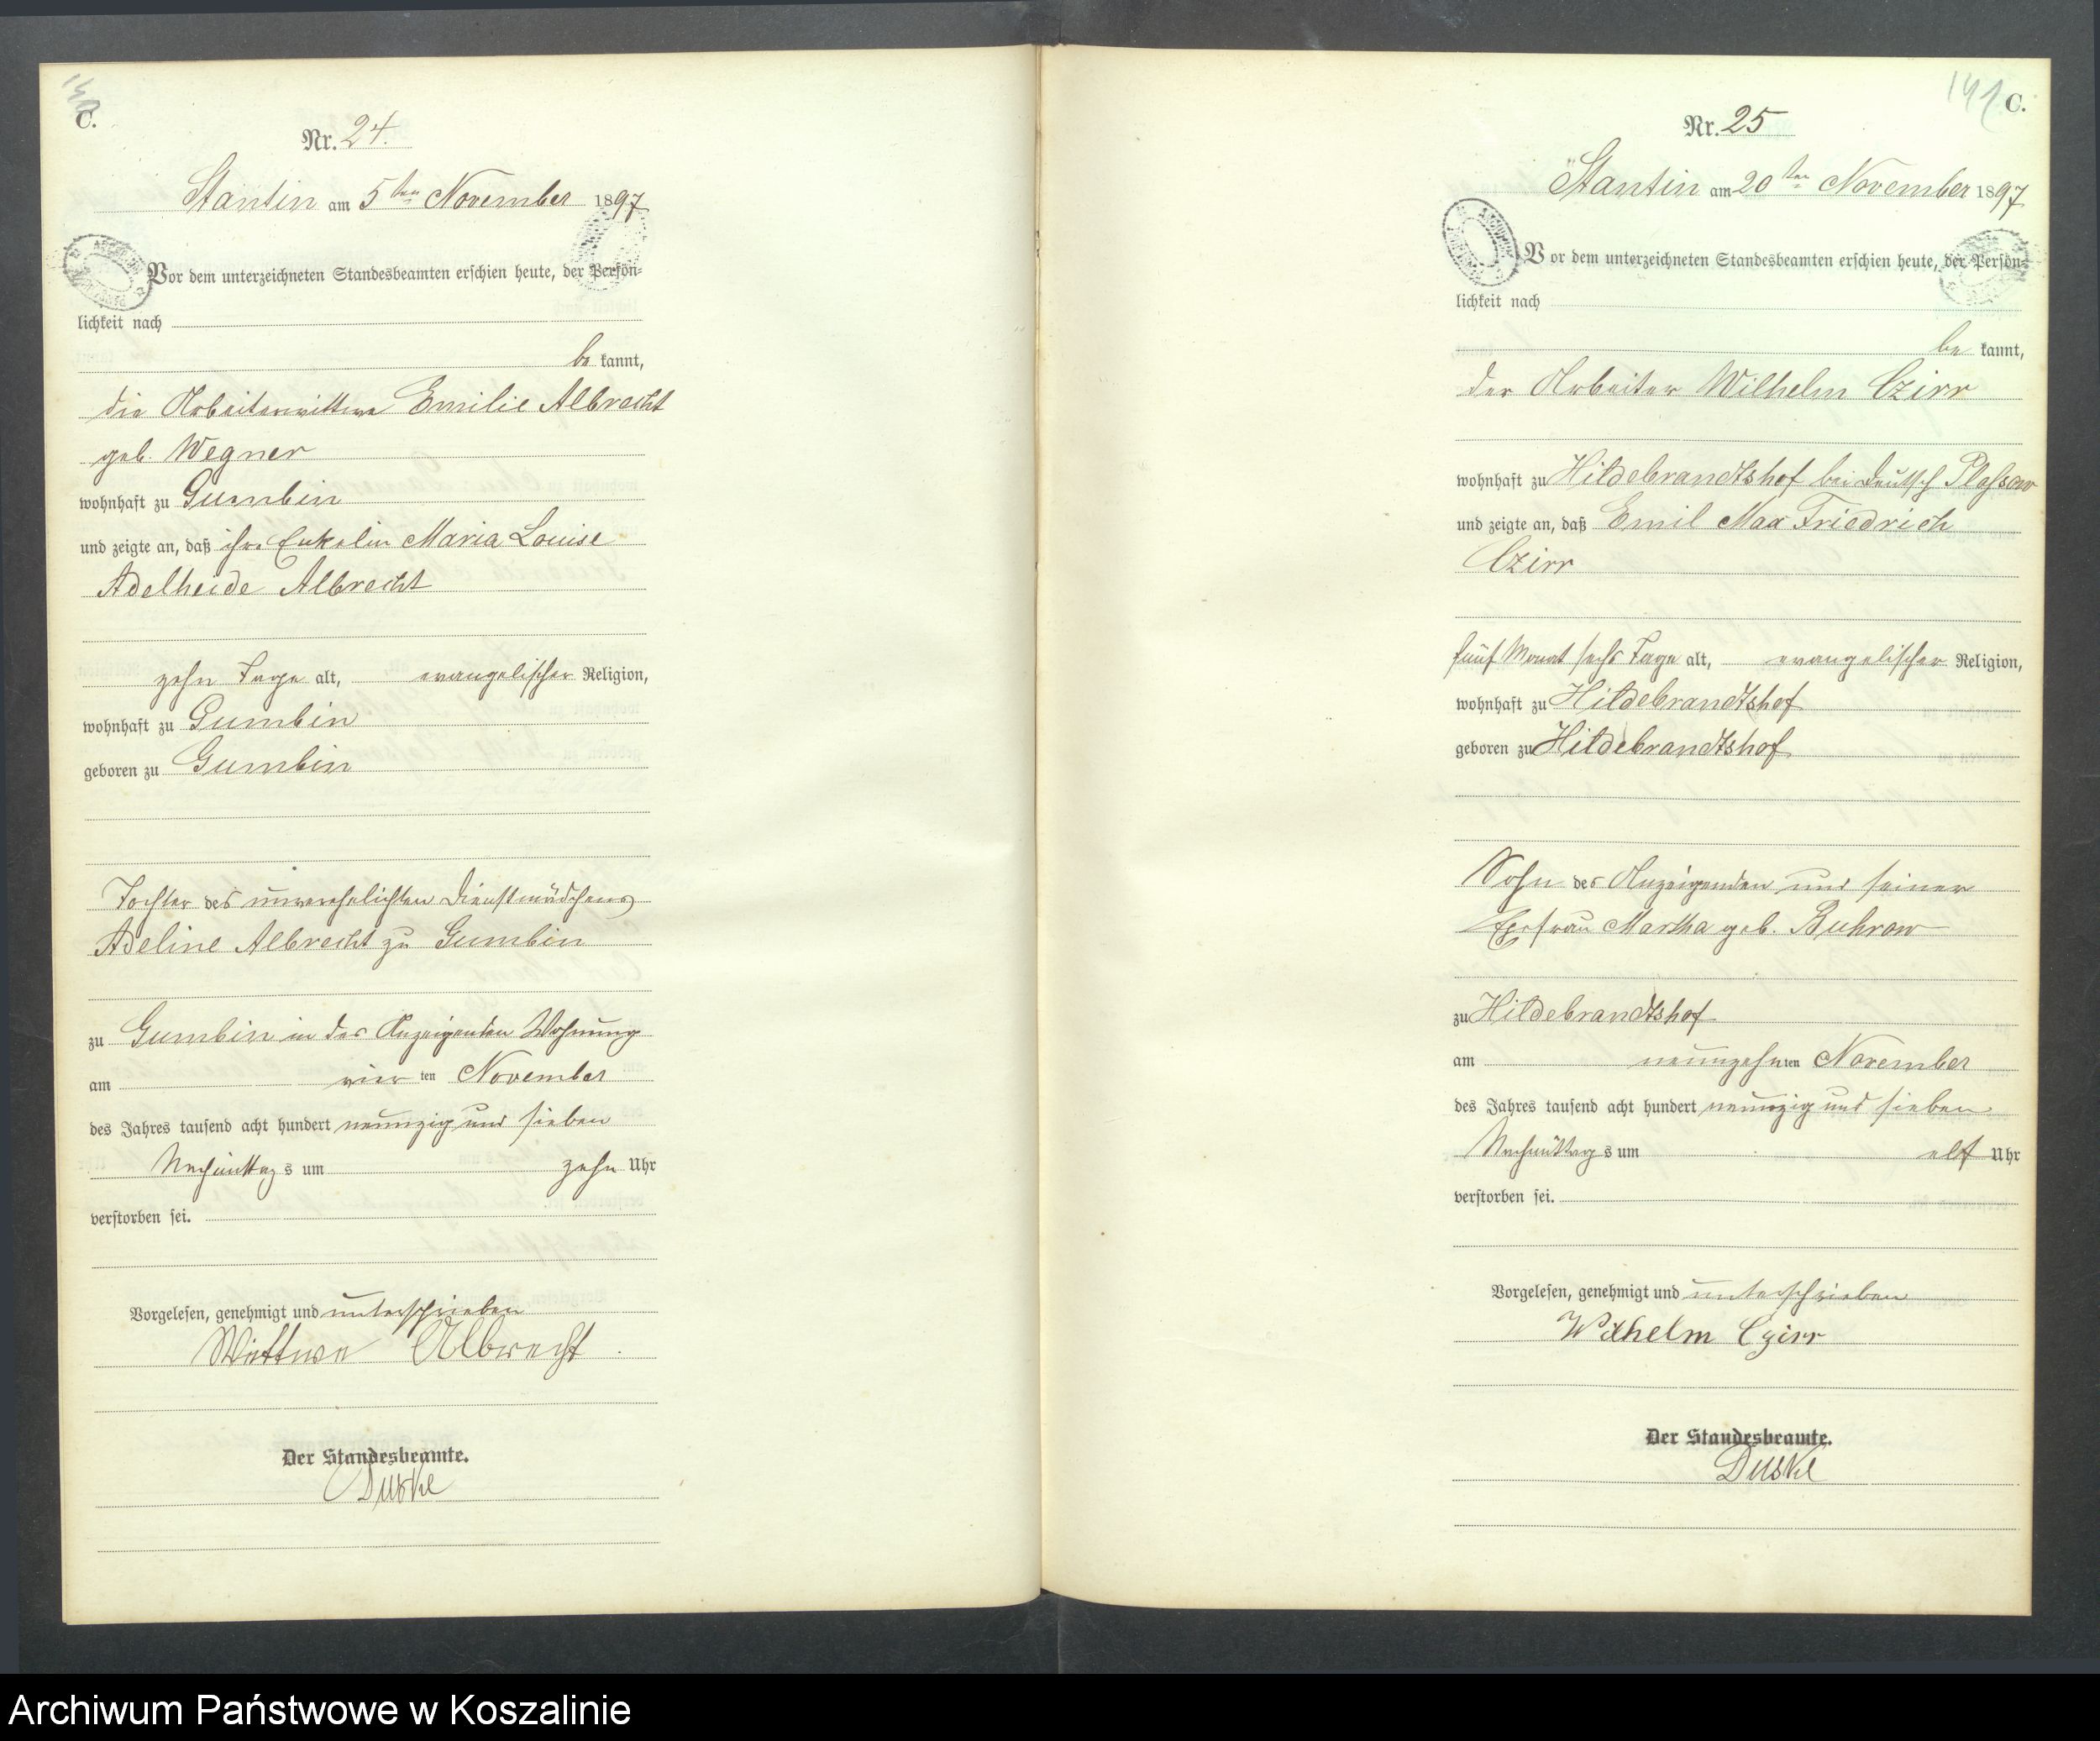 140
C.
Nr. 24.
Stantin am 5ten November 1897
Vor dem unterzeichneten Standesbeamten erschien heute, der Persön-
lichkeit nach
be kannt,
die Arbeiterwittwe Emilie Albrecht
geb. Wegner
wohnhaft zu Gumbin
und zeigte an, daß ihre Enkelin Maria Louise
Adelheide Albrecht
zehn Tage alt, evangelischer Religion,
wohnhaft zu Gumbin
geboren zu Gumbin
Tochter des unverehelichten Dienstmädchens
Adeline Albrecht zu Gumbin
zu Gumbin in der Anzeigenden Wohnung
am vier ten November
des Jahres tausend acht hundert neunzig und sieben
Nachmittag s um zehn Uhr
verstorben sei.
Vorgelesen, genehmigt und unterschrieben
Wittwe Albrecht
Der Standesbeamte.
Duske
141
C.
Nr. 25
Stantin am 20ten November 1897
Vor dem unterzeichneten Standesbeamten erschien heute, der Persön-
lichkeit nach
be kannt,
der Arbeiter Wilhelm Czirr
wohnhaft zu Hildebrandtshof bei Deutsch Plassow
und zeigte an, daß Emil Max Friedrich
Czirr
fünf Monat sechs Tage alt, evangelischer Religion,
wohnhaft zu Hildebrandtshof
geboren zu Hildebrandtshof
Sohn des Anzeigenden und seiner
Ehefrau Martha geb. Buhrow
zu Hildebrandtshof
am neunzehn ten November
des Jahres tausend acht hundert neunzig und sieben
Nachmittag s um elf Uhr
verstorben sei.
Vorgelesen, genehmigt und unterschrieben
Wilhelm Czirr
Der Standesbeamte.
Duske
Archiwum Państwowe w Koszalinie